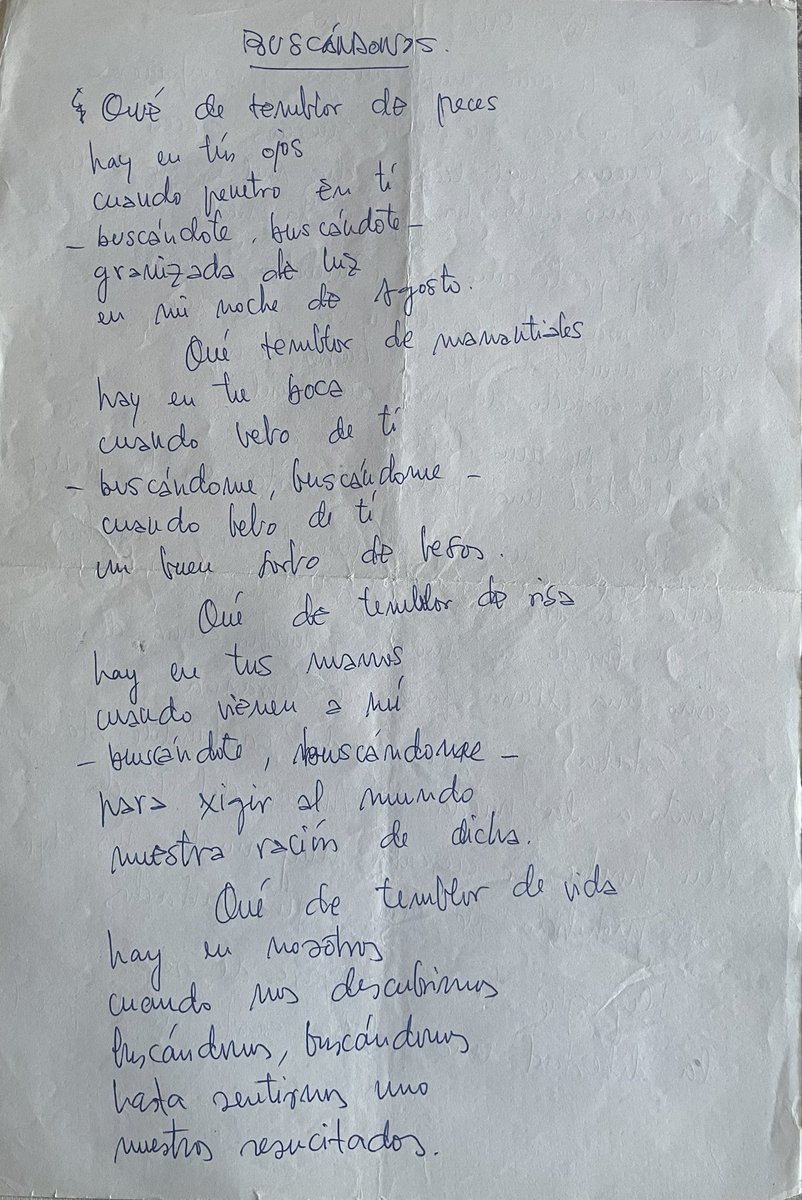 BUSCÁNDONOS.
Qué de temblor de peces
hay en tus ojos
cuando penetro en tí
- buscándote, buscándote -
granizada de luz
en mi noche de Agosto.
Qué temblor de manantiales
hay en tu boca
cuando bebo de tí
- buscándome, buscándome -
cuando bebo de tí
un buen sorbo de besos.
Qué de temblor de risa
hay en tus manos
cuando vienen a mí
- buscándote, buscándome -
para xigir al mundo
nuestra ración de dicha.
Qué de temblor de vida
hay en nosotros
cuando nos descubrimos
buscándonos, buscándonos
hasta sentirnos uno
nuestros resucitados.